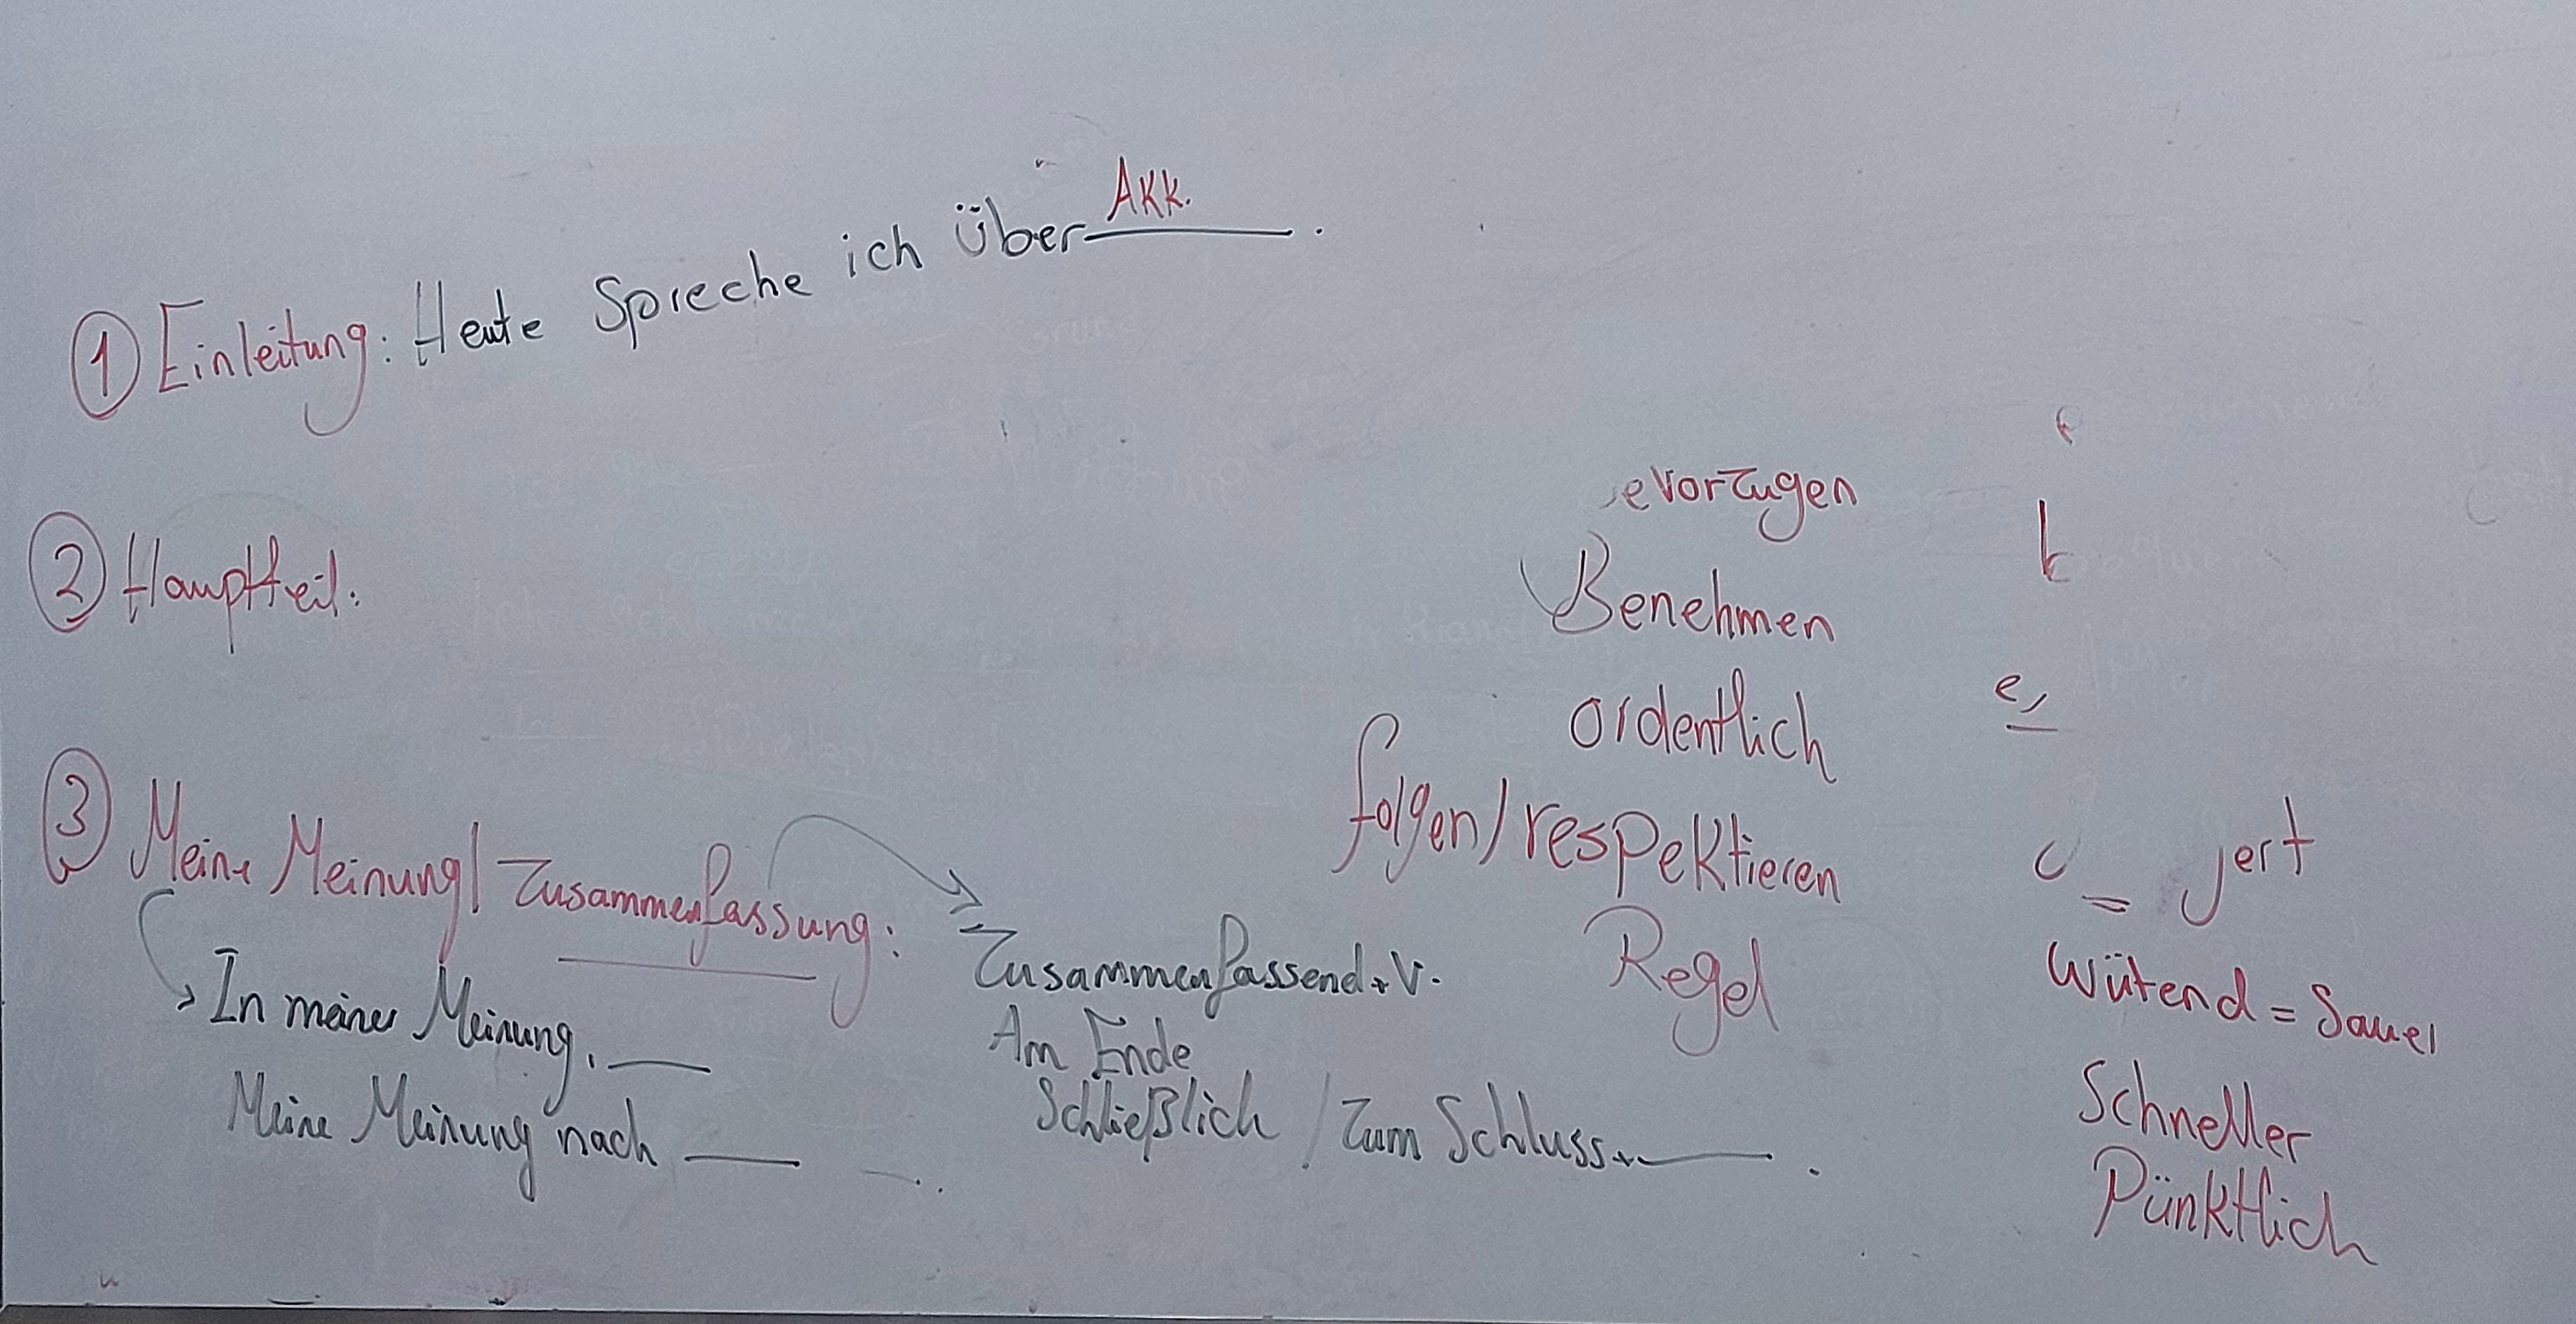 ① Einleitung: Heute Spreche ich über Akk. ______.
② Hauptteil:
③ Meine Meinung/Zusammenfassung:
In meiner Meinung, ____
Meine Meinung nach ____
Zusammenfassend + V.
Am Ende
Schließlich / Zum Schluss + ______.
evorzugen
Benehmen
ordentlich
folgen/respektieren
Regel
wütend = Sauer
Schneller
Pünktlich